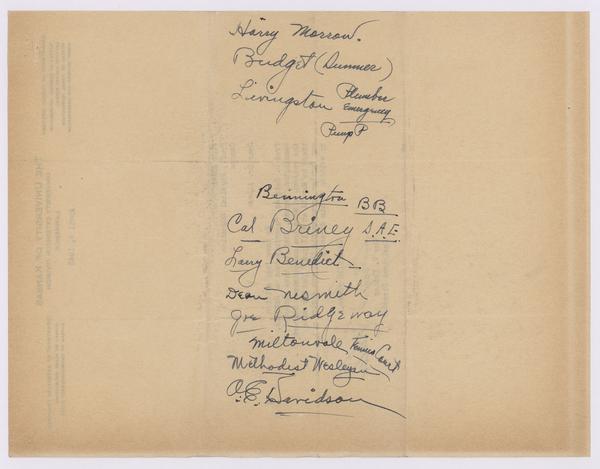 Harry Morrow.
Budget (Summer)
Livingston Plumber
Emergency
Pump P
Bennington BB
Cal Briney S.A.E.
Larry Benedict
Dean Nesmith
Joe Ridgeway
Miltonvale Tennis Court
Methodist Wesleyan
O.E. Davidson
THE UNIVERSITY OF KANSAS